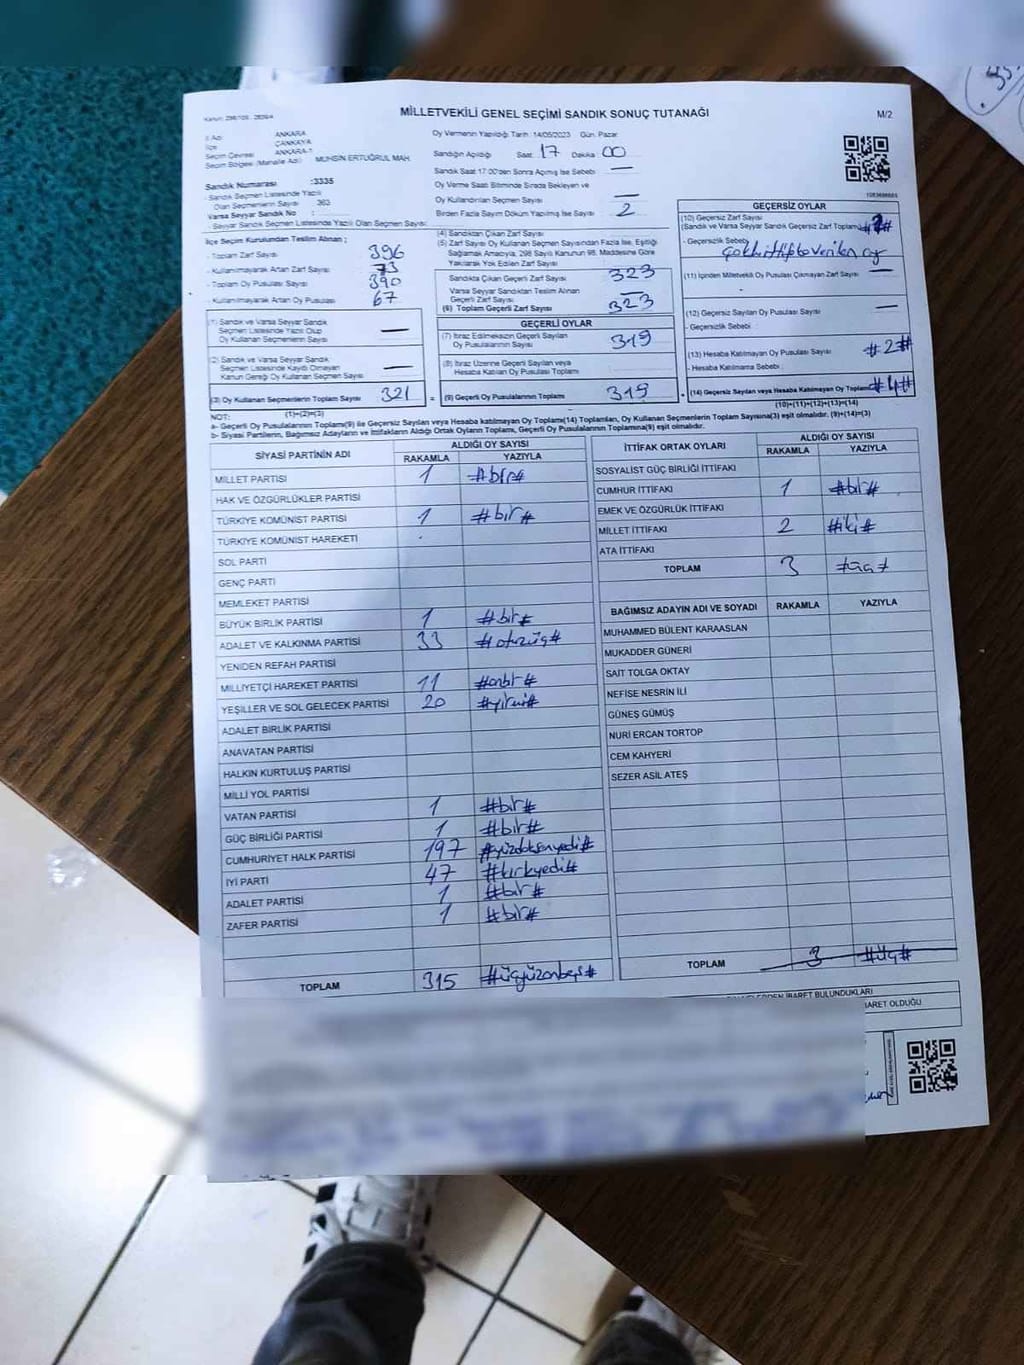 MİLLETVEKİLİ GENEL SEÇİMİ SANDIK SONUÇ TUTANAĞI
M/2
İl Adı ANKARA
İlçe ÇANKAYA
Seçim Çevresi ANKARA-1
Seçim Bölgesi (Mahalle Adı) MUHSİN ERTUĞRUL MAH.
Sandık Numarası :3335
- Sandık Seçmen Listesinde Yazılı
Olan Seçmenlerin Sayısı 363
Varsa Seyyar Sandık No :
- Seyyar Sandık Seçmen Listesinde Yazılı Olan Seçmen Sayısı:
Oy Vermenin Yapıldığı Tarih : 14/05/2023 Gün. Pazar
Sandığın Açıldığı Saat 17 Dakika 00
Sandık Saat 17.00'den Sonra Açılmış İse Sebebi —
Oy Verme Saati Bitiminde Sırada Bekleyen ve
Oy Kullandırılan Seçmen Sayısı —
Birden Fazla Sayım Döküm Yapılmış İse Sayısı 2
İlçe Seçim Kurulundan Teslim Alınan ;
- Toplam Zarf Sayısı 396
- Kullanılmayarak Artan Zarf Sayısı 73
- Toplam Oy Pusulası Sayısı 390
- Kullanılmayarak Artan Oy Pusulası 67
(1) Sandık ve Varsa Seyyar Sandık
Seçmen Listesinde Yazılı Olup
Oy Kullanan Seçmenlerin Sayısı —
(2) Sandık ve Varsa Seyyar Sandık
Seçmen Listesinde Kaydı Olmayan
Kanun Gereği Oy Kullanan Seçmen Sayısı —
(3) Oy Kullanan Seçmenlerin Toplam Sayısı 321
(1)+(2)=(3)
(4) Sandıktan Çıkan Zarf Sayısı
(5) Zarf Sayısı Oy Kullanan Seçmen Sayısından Fazla İse, Eşitliği
Sağlamak Amacıyla, 298 Sayılı Kanunun 98. Maddesine Göre
Yakılarak Yok Edilen Zarf Sayısı
Sandıkta Çıkan Geçerli Zarf Sayısı 323
Varsa Seyyar Sandıktan Teslim Alınan
Geçerli Zarf Sayısı —
(6) Toplam Geçerli Zarf Sayısı 323
GEÇERLİ OYLAR
(7) İtiraz Edilmeksizin Geçerli Sayılan
Oy Pusulalarının Sayısı 319
(8) İtiraz Üzerine Geçerli Sayılan veya
Hesaba Katılan Oy Pusulası Toplamı
(9) Geçerli Oy Pusulalarının Toplamı 319
GEÇERSİZ OYLAR
(10) Geçersiz Zarf Sayısı
(Sandık ve Varsa Seyyar Sandık Geçersiz Zarf Toplamı)
- Geçersizlik Sebebi
(11) İçinden Milletvekili Oy Pusulası Çıkmayan Zarf Sayısı —
(12) Geçersiz Sayılan Oy Pusulası Sayısı —
- Geçersizlik Sebebi
(13) Hesaba Katılmayan Oy Pusulası Sayısı #2#
- Hesaba Katılmama Sebebi
(14) Geçersiz Sayılan veya Hesaba Katılmayan Oy Toplamı #4#
(10)+(11)+(12)+(13)=(14)
NOT:
a- Geçerli Oy Pusulalarının Toplamı(9) ile Geçersiz Sayılan veya Hesaba katılmayan Oy Toplamı(14) Toplamları, Oy Kullanan Seçmenlerin Toplam Sayısına(3) eşit olmalıdır. (9)+(14)=(3)
b- Siyasi Partilerin, Bağımsız Adayların ve İttifakların Aldığı Ortak Oyların Toplamı, Geçerli Oy Pusulalarının Toplamına(9) eşit olmalıdır.
SİYASİ PARTİNİN ADI ALDIĞI OY SAYISI
RAKAMLA YAZIYLA
MİLLET PARTİSİ 1 #bir#
HAK VE ÖZGÜRLÜKLER PARTİSİ
TÜRKİYE KOMÜNİST PARTİSİ 1 #bir#
TÜRKİYE KOMÜNİST HAREKETİ
SOL PARTİ
GENÇ PARTİ
MEMLEKET PARTİSİ
BÜYÜK BİRLİK PARTİSİ 1 #bir#
ADALET VE KALKINMA PARTİSİ 33 #otuzüç#
YENİDEN REFAH PARTİSİ
MİLLİYETÇİ HAREKET PARTİSİ 11 #onbir#
YEŞİLLER VE SOL GELECEK PARTİSİ 20 #yirmi#
ADALET BİRLİK PARTİSİ
ANAVATAN PARTİSİ
HALKIN KURTULUŞ PARTİSİ
MİLLİ YOL PARTİSİ
VATAN PARTİSİ 1 #bir#
GÜÇ BİRLİĞİ PARTİSİ 1 #bir#
CUMHURİYET HALK PARTİSİ 197 #yüzdoksanyedi#
İYİ PARTİ 47 #kırkyedi#
ADALET PARTİSİ 1 #bir#
ZAFER PARTİSİ 1 #bir#
TOPLAM 315 #üçyüzonbeş#
İTTİFAK ORTAK OYLARI ALDIĞI OY SAYISI
RAKAMLA YAZIYLA
SOSYALİST GÜÇ BİRLİĞİ İTTİFAKI
CUMHUR İTTİFAKI 1 #bir#
EMEK VE ÖZGÜRLÜK İTTİFAKI
MİLLET İTTİFAKI 2 #iki#
ATA İTTİFAKI
TOPLAM 3 #üç#
BAĞIMSIZ ADAYIN ADI VE SOYADI RAKAMLA YAZIYLA
MUHAMMED BÜLENT KARAASLAN
MUKADDER GÜNERİ
SAİT TOLGA OKTAY
NEFİSE NESRİN İLİ
GÜNEŞ GÜMÜŞ
NURİ ERCAN TORTOP
CEM KAHYERİ
SEZER ASİL ATEŞ
TOPLAM 3 #üç#
İBARET BULUNDUKLARI
OLDUĞU